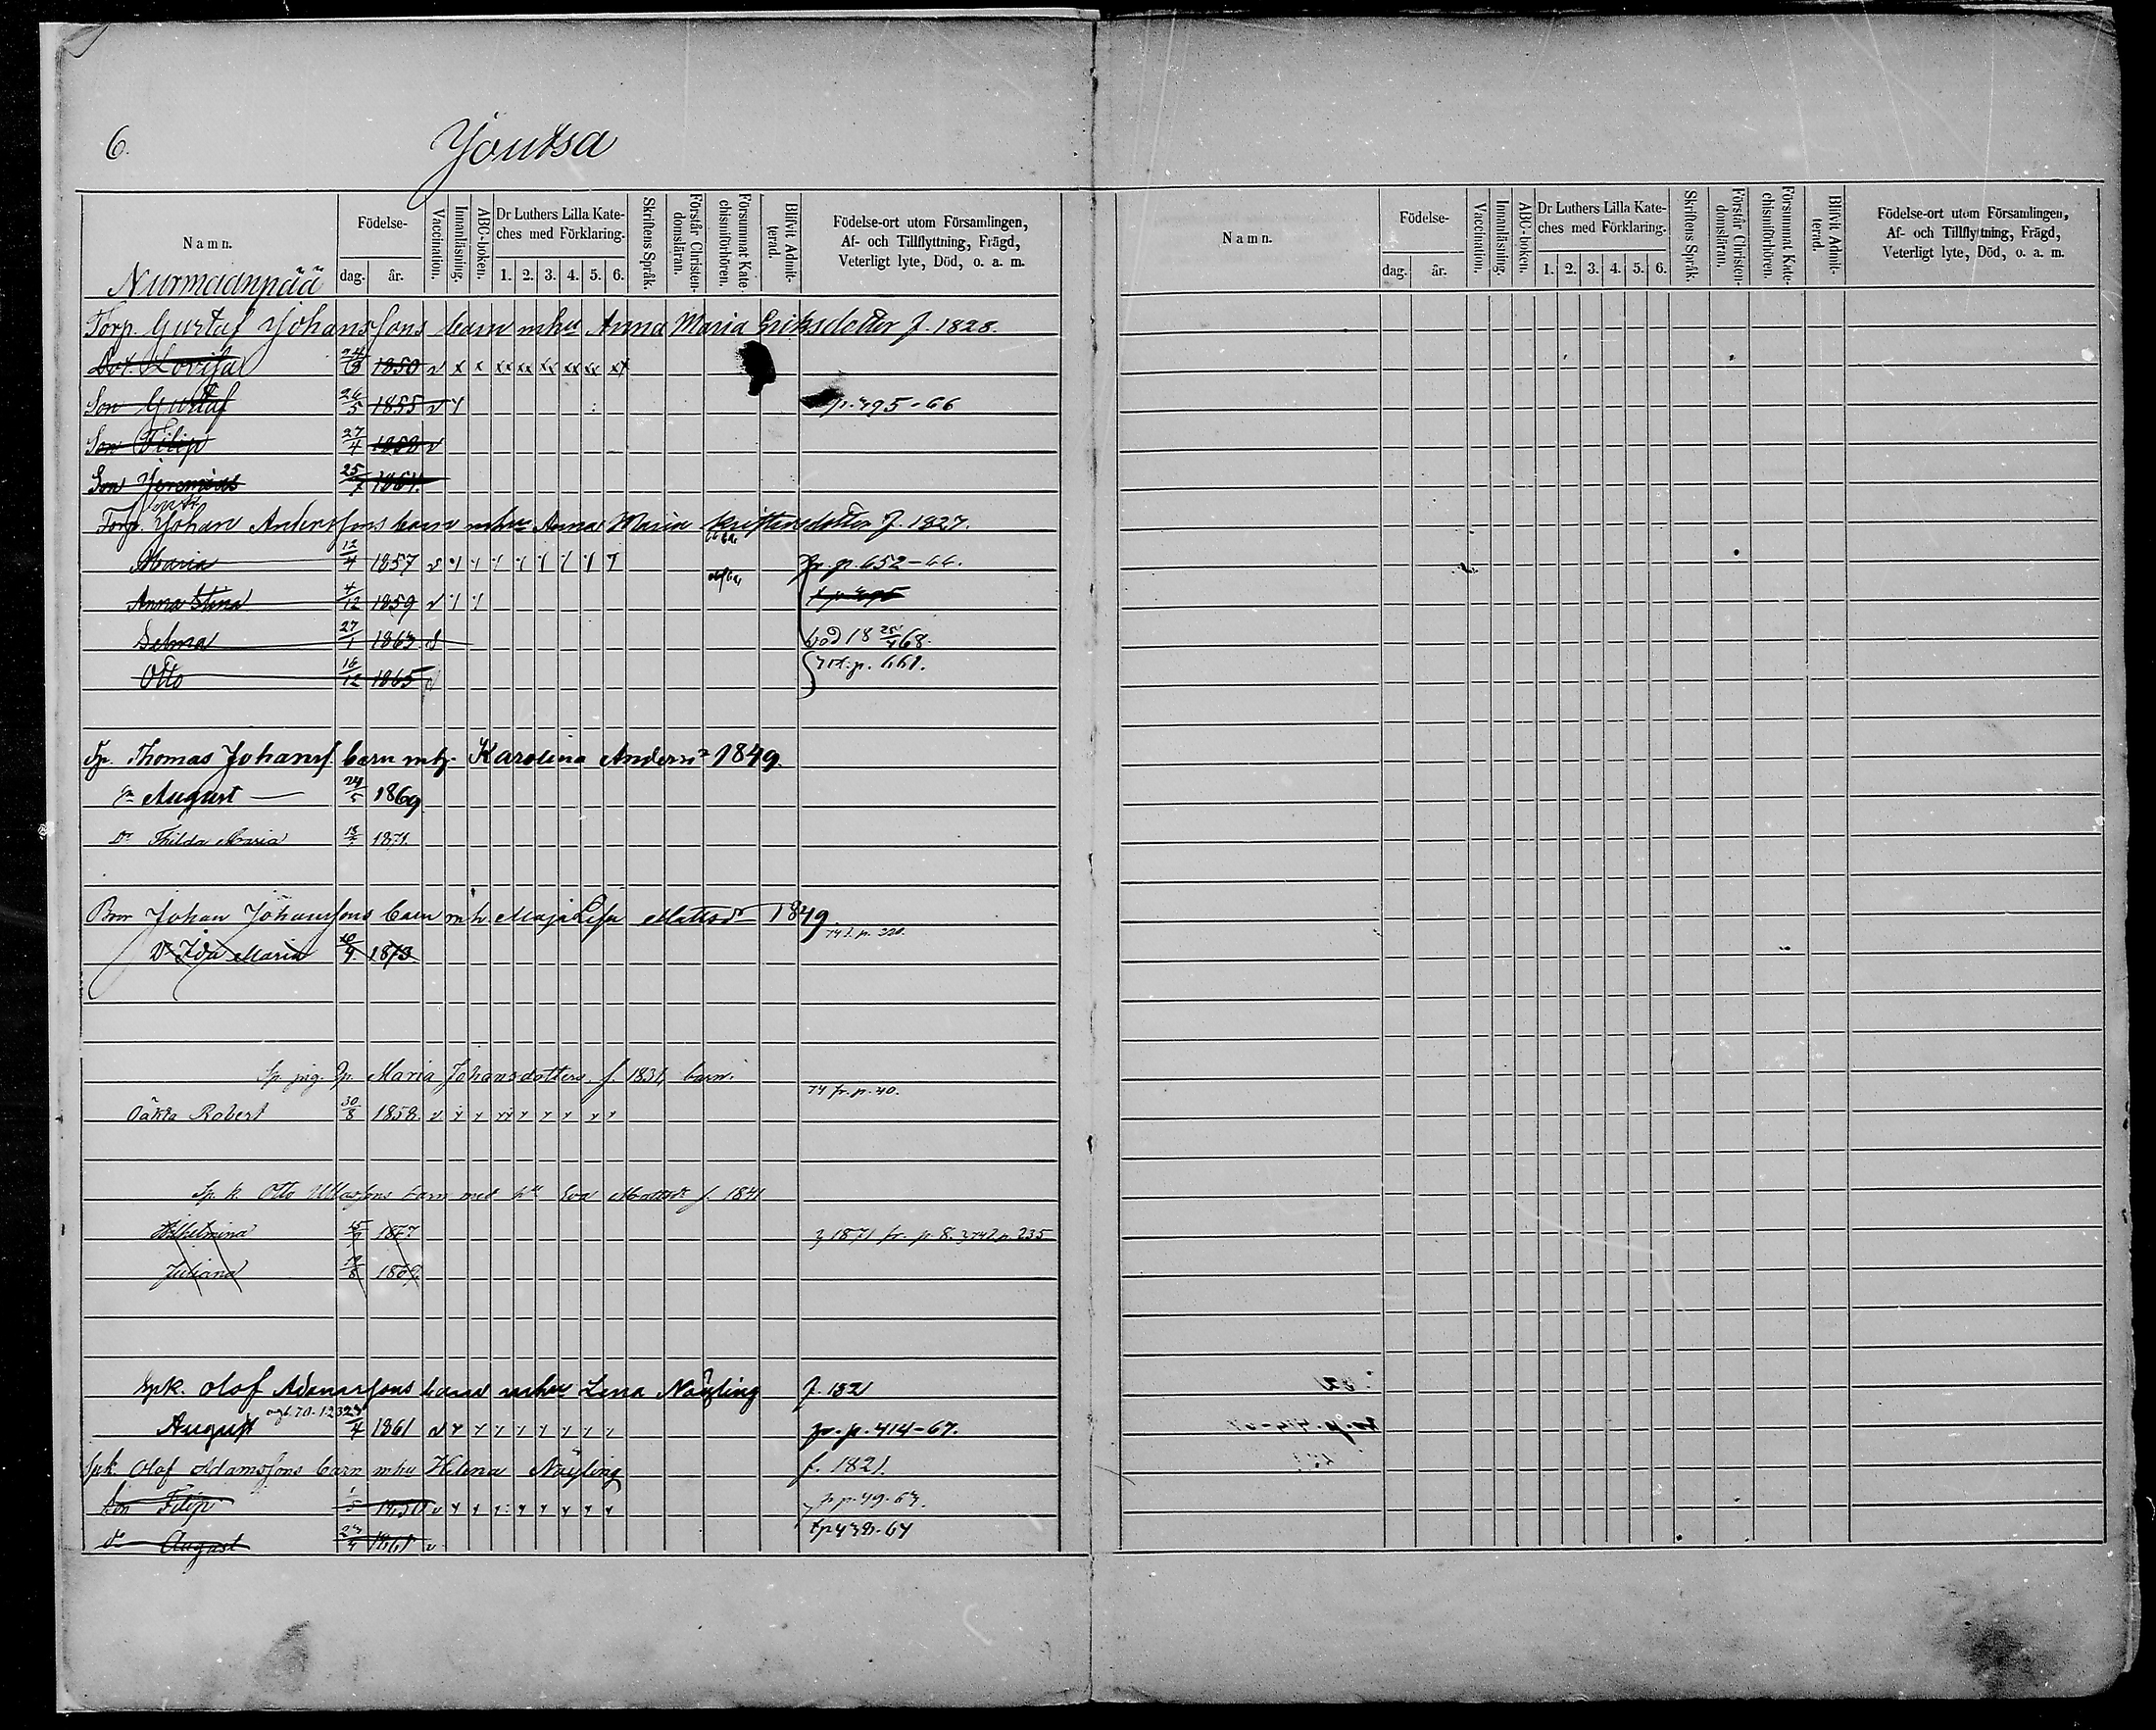 6.
Joutsa
Namn.
Födelse-
dag. år.
Vaccination.
Innanläsning.
ABC-boken.
Dr Luthers Lilla Kate-
ches med Förklaring.
1. 2. 3. 4. 5. 6.
Skriftens Språk.
Förstår Christen-
domsläran.
Försummat Kate
chismiförhören.
Blifvit Admit-
terad.
Födelse-ort utom Församlingen,
Af- och Tillflyttning, Frägd,
Veterligt lyte, Död, o. a. m.
Nurmaanpää
Torp. Gustaf Johanssons barn mhu Anna Maria Eriksdotter f. 1828.
Dot. Lovisa 1850 v x x xx xx xx xx xx xx
Son Gustaf 26/5 1855 v p. 495-66
Son Filip 27/4 1858 v
Son Jeremias 25/7 1864.
Torp. Johan Anderssons barn mhu Anna Maria Kristersdotter f. 1827.
Maria 12/4 1857 v fr. p. 652-66.
Anna Stina 4/12 1859 v
Selma 27/1 1863 död 18 25/4 68.
Otto 16/12 1865 p. 661.
Tp. Thomas Johanss barn mh. Karolina Andersdr 1849.
Sn August 24/5 1869
Dr Thilda Maria 1871.
Bror Johan Johanssons barn mh. Maja Lisa Mattsdr 1849
Dr Ida Maria 1873. 74 p. 220.
Sp. pig. Maria Johansdotters f. 1831, barn.
Oäkta Robert 30/8 1858. v 74 fr. p. 40.
Sp. k. Otto barn med hu Eva Mattsdr f. 1841
Wilhelmina 1877 1871 fr. p. 8. p. 235
Juliana 1869.
Spk. Olof Adamssons barn mhu Lena Näyling f. 1821
August 23/4 1861 v fr. p. 414-67.
Spk. Olof Adamssons barn mhu Helena Näyling f. 1821.
Son Filip 1/5 v p. 49-63.
dn August 23/4 1861 v tp 438-64
Namn.
Födelse-
dag. år.
Vaccination.
Innanläsning.
ABC-boken.
Dr Luthers Lilla Kate-
ches med Förklaring.
1. 2. 3. 4. 5. 6.
Skriftens Språk.
Förstår Christen-
domsläran.
Försummat Kate-
chismiförhören.
Blifvit Admit-
terad.
Födelse-ort utom Församlingen,
Af- och Tillflyttning, Frägd,
Veterligt lyte, Död, o. a. m.